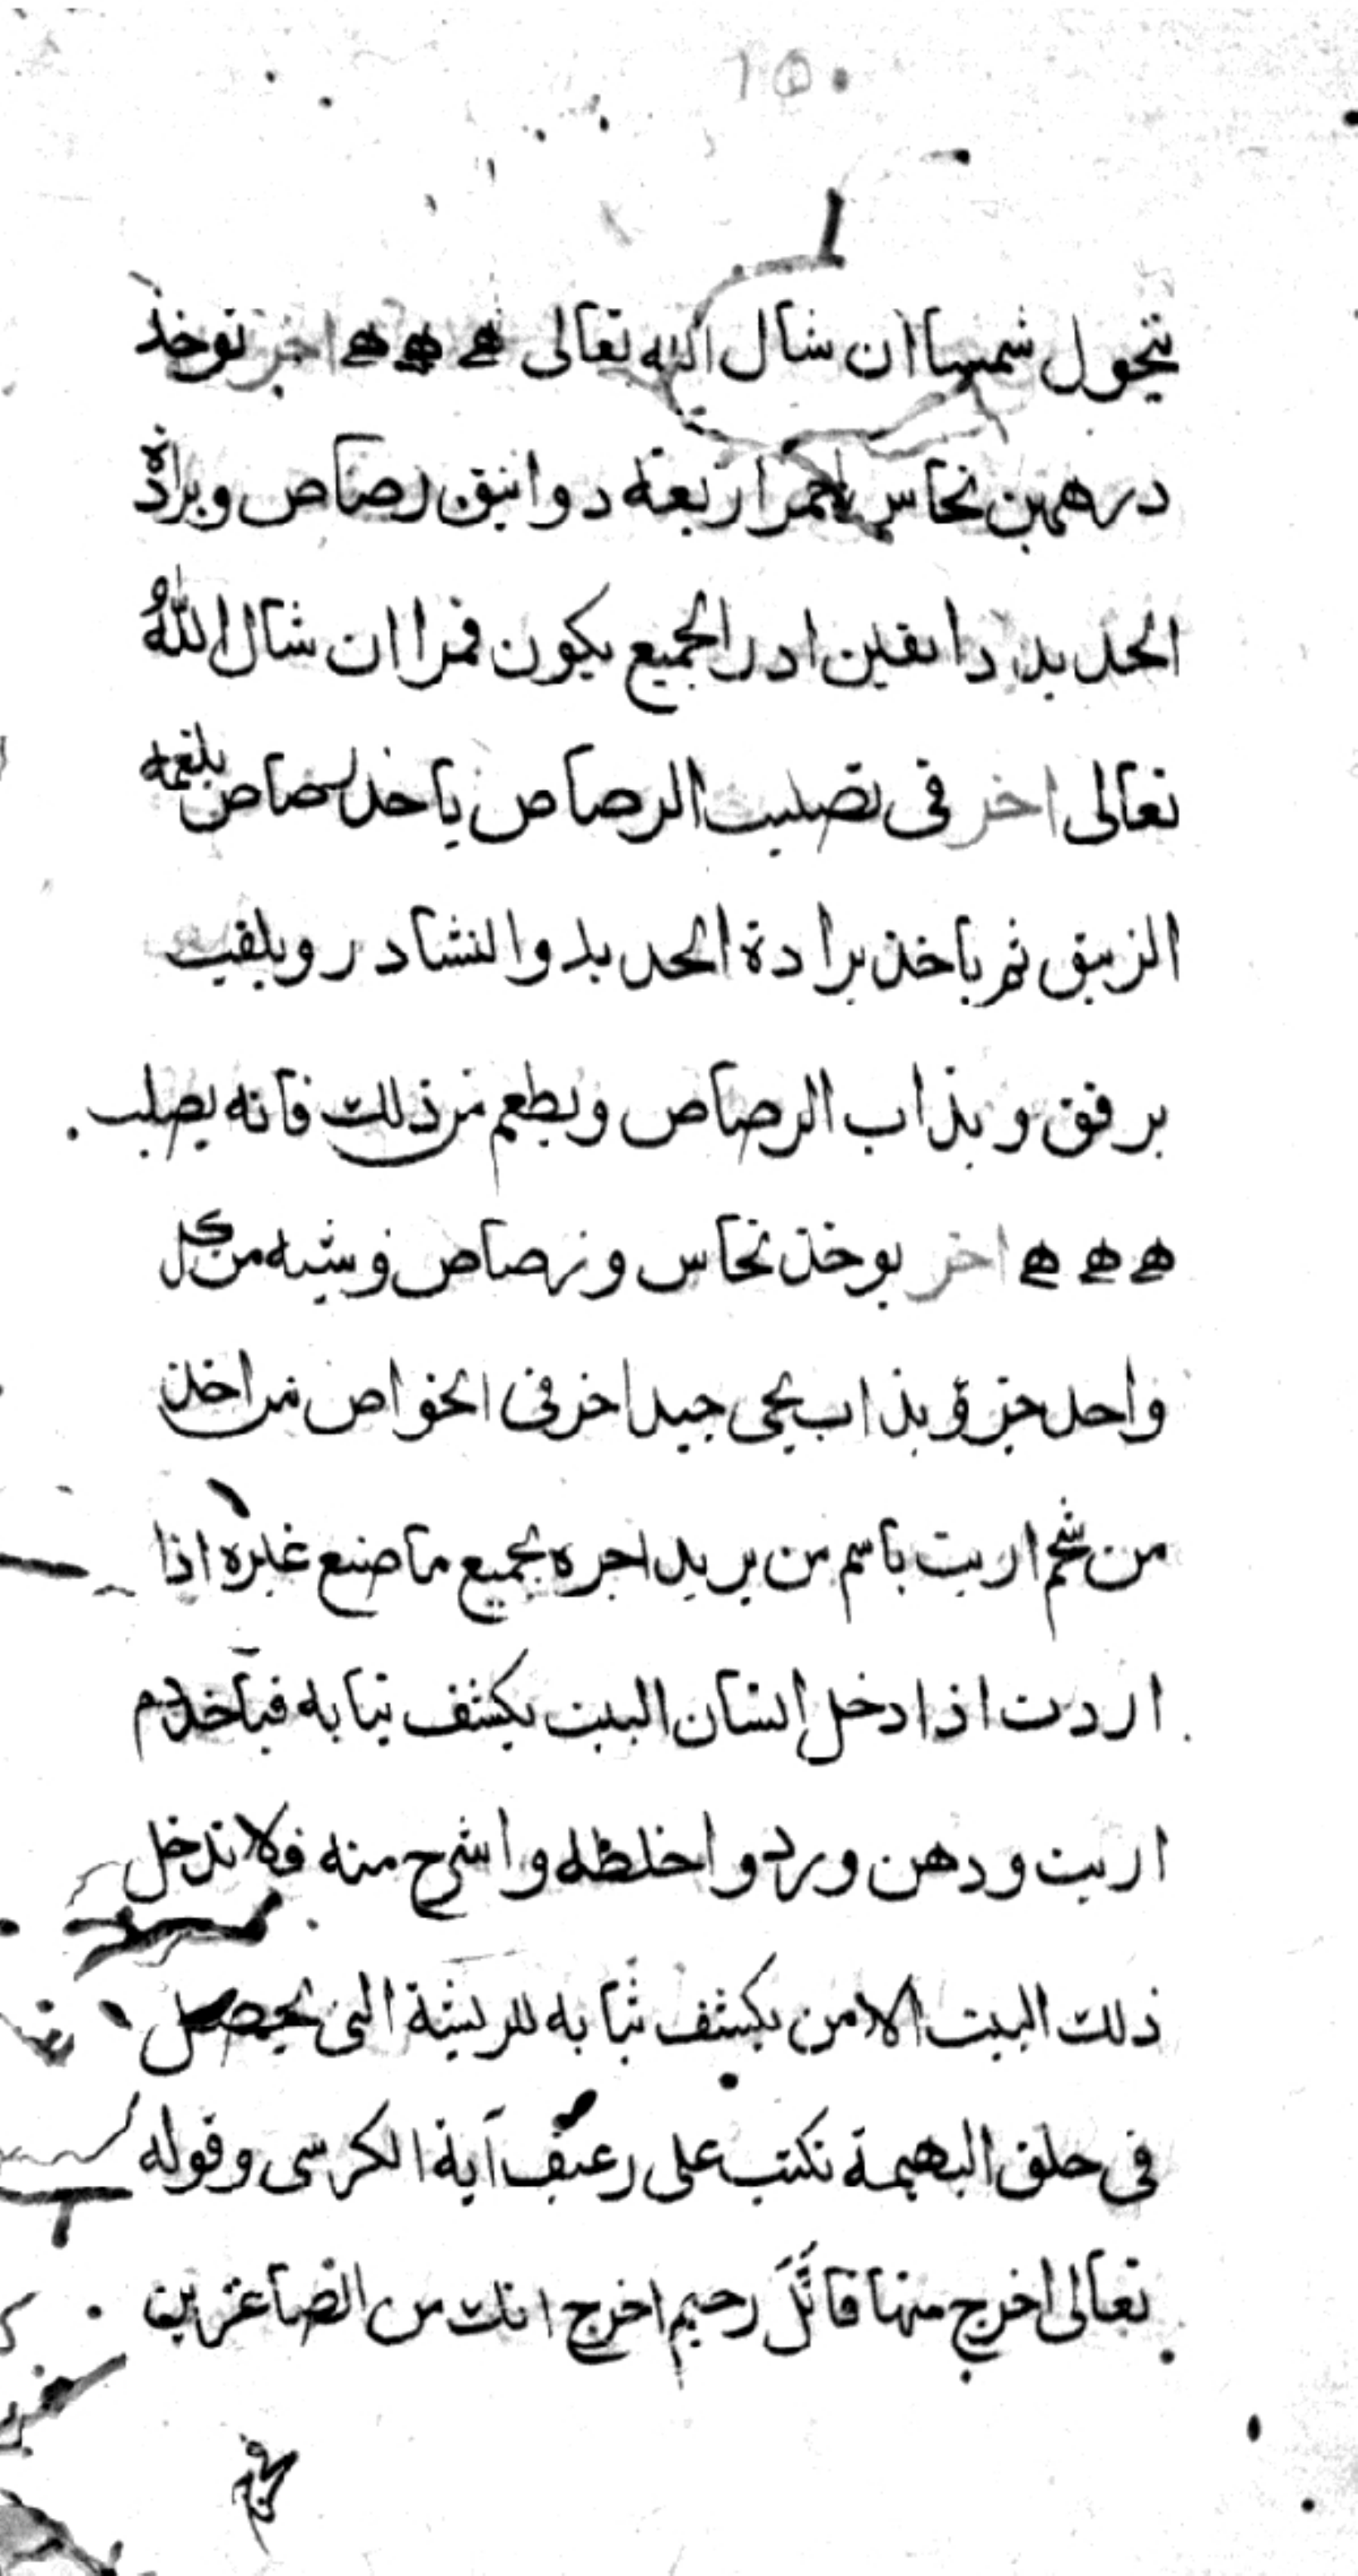 ١٥٠
يتحول شمسا ان شال الله تعالى ه ه ه اخر توخذ
درهمين نحاس احمر اربعة دوانيق رصاص وبرادة
الحديد دانقين ادر الجميع يكون قمرا ان شال اللهُ
تعالى اخر فى تصليب الرصاص ياخذ رصاص يلغمه
الزيبق ثم ياخذ برادة الحديد والنشادر ويلقيت
برفق ويذاب الرصاص ويطعم من ذلك فانه يصلب
ه ه ه اخر يوخذ نحاس ورصاص وشبه من كل
واحد جزؤ يذاب يجى جيد اخر فى الخواص من اخذ
من شحم ارنب باسم من يريد اخبره بجميع ما صنع غيره اذا
اردت اذا دخل انسان البيت يكشف ثيابه فياخذ دم
ارنب ودهن ورد واخلطه واشرح منه فلا تدخل
ذلك البيت الا من يكشف ثيابه للريشة التى تحصل
فى حلق البهيمة تكتب على رغيف آية الكرسى وقوله
تعالى اخرج منها فانَّكَ رجيم اخرج انك من الصاغرين